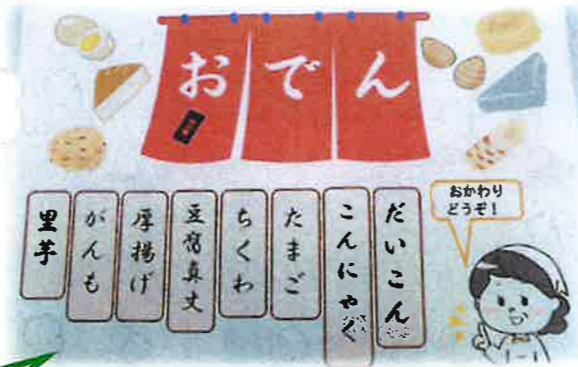 おでん
おかわり
どうぞ！
だいこん
こんにゃく
たまご
ちくわ
豆腐真丈
厚揚げ
がんも
里芋